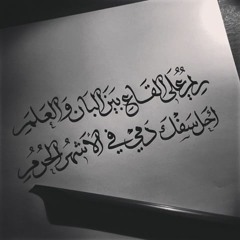 ريم على القاع بين البان والعلم
احل سفك دمي في الأشهر الحرم